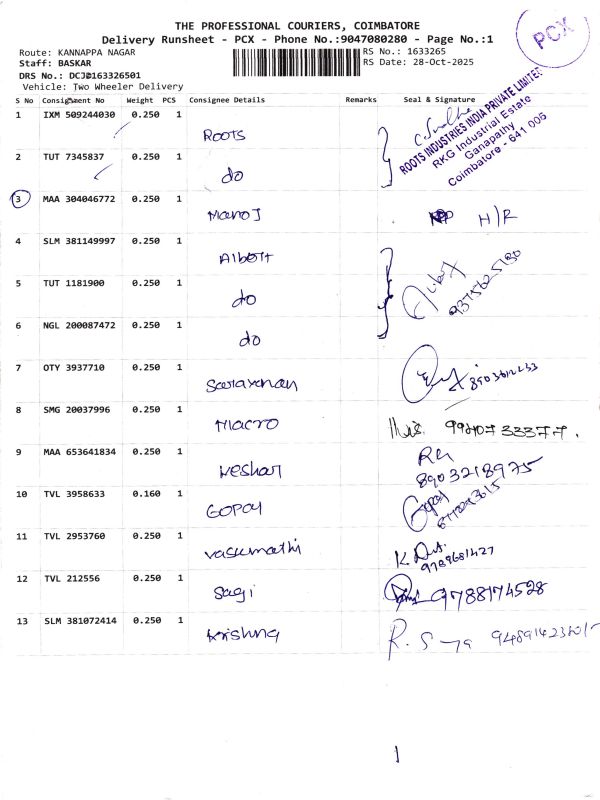 THE PROFESSIONAL COURIERS, COIMBATORE
Delivery Runsheet - PCX - Phone No.:9047080280 - Page No.:1
PCX
Route: KANNAPPA NAGAR
RS No.: 1633265
Staff: BASKAR
RS Date: 28-Oct-2025
DRS No.: DCJD163326501
Vehicle: Two Wheeler Delivery
S No Consignment No Weight PCS Consignee Details Remarks Seal & Signature
1 IXM 509244030 0.250 1 ROOTS
ROOTS INDUSTRIES INDIA PRIVATE LIMITED
RKG Industrial Estate
Ganapathy
Coimbatore - 641 006
2 TUT 7345837 0.250 1 do
3 MAA 304046772 0.250 1 Manoj H/R
4 SLM 381149997 0.250 1 Albott
5 TUT 1181900 0.250 1 do
6 NGL 200087472 0.250 1 do
7 OTY 3937710 0.250 1 Saravanan
8 SMG 20037996 0.250 1 Macro 9940733377.
9 MAA 653641834 0.250 1 Keshav
8903218975
10 TVL 3958633 0.160 1 GOPAL
11 TVL 2953760 0.250 1 Vasumathi
9789681427
12 TVL 212556 0.250 1 Sagi 9788174528
13 SLM 381072414 0.250 1 Krishna
1